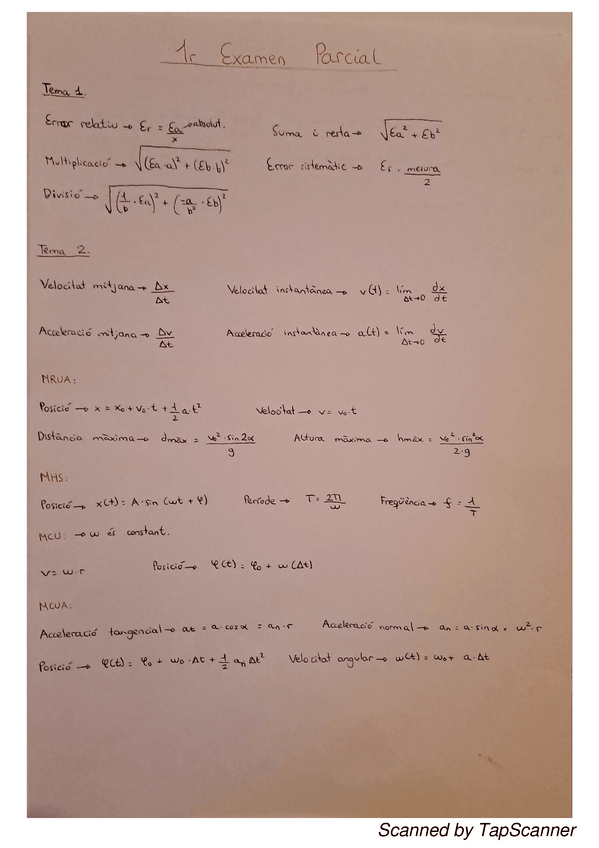 1r Examen Parcial
Tema 1.
Error relatiu → Er = Ea/x → absolut.
Suma i resta → √(Ea² + Eb²)
Multiplicació → √((Ea·a)² + (Eb·b)²)
Error sistemàtic → Es · mesura/2
Divisió → √((1/b · Ea)² + (-a/b² · Eb)²)
Tema 2.
Velocitat mitjana → Δx/Δt
Velocitat instantània → v(t) = lim Δt→0 dx/dt
Acceleració mitjana → Δv/Δt
Acceleració instantània → a(t) = lim Δt→0 dv/dt
MRUA:
Posició → x = x₀ + v₀·t + 1/2 a t²
Velocitat → v = v₀·t
Distància màxima → dmàx = v₀²·sin 2α/g
Altura màxima → hmàx = v₀²·sin²α/2·g
MHS:
Posició → x(t) = A·sin (ωt + φ)
Període → T = 2π/ω
Freqüència → f = 1/T
MCU: → ω és constant.
v = ω·r
Posició → φ(t) = φ₀ + ω(Δt)
MCUA:
Acceleració tangencial → at = a·cosα = an·r
Acceleració normal → an = a·sinα = ω²·r
Posició → φ(t) = φ₀ + ω₀·Δt + 1/2 an Δt²
Velocitat angular → ω(t) = ω₀ + a·Δt
Scanned by TapScanner